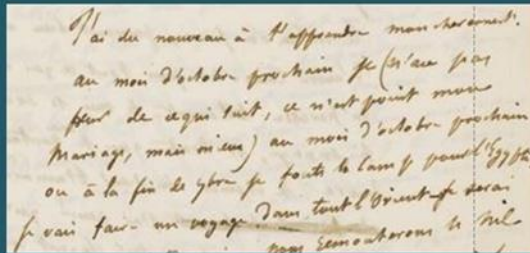 J'ai du nouveau à t'apprendre mon cher ernest.
au mois d'octobre prochain je (n'aie pas
peur de ce qui suit, ce n'est point mon
mariage, mais mieux) au mois d'octobre prochain
ou à la fin de 7bre je fouts le camp pour l'Egypte
je vais faire un voyage dans tout l'Orient je serai
nous remonterons le nil